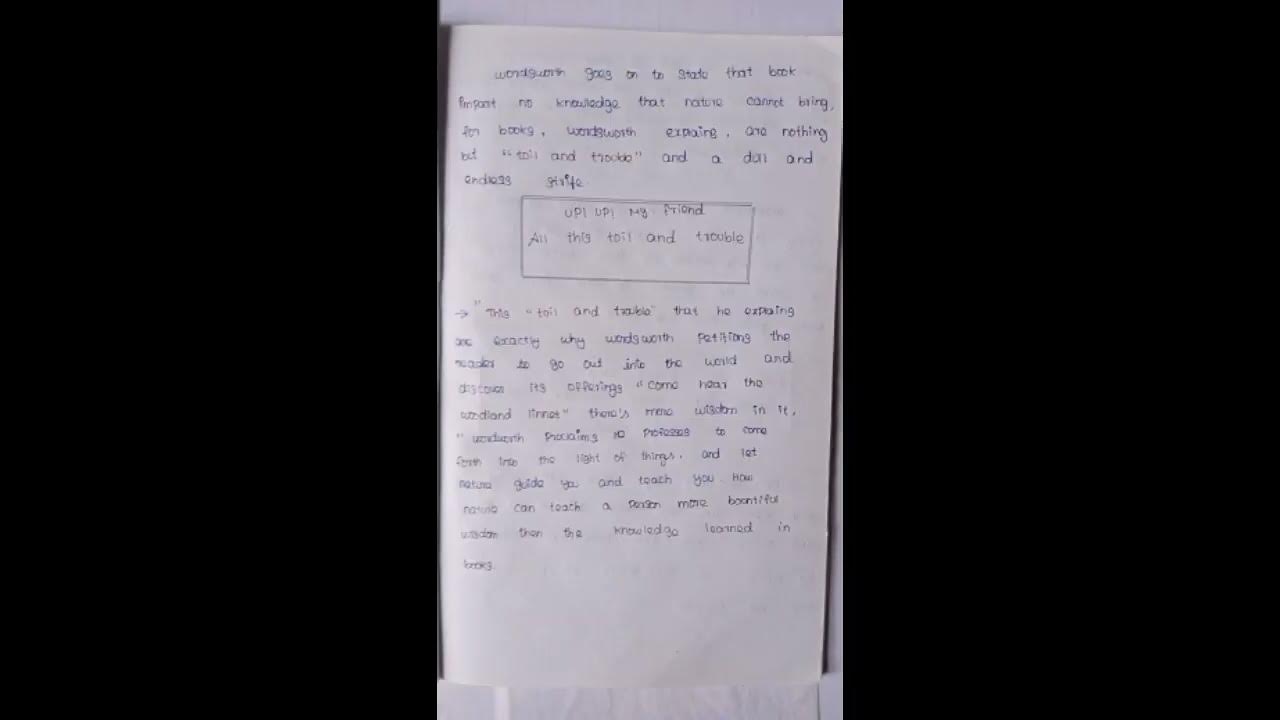 wordsworth goes on to state that book
impart no knowledge that nature cannot bring,
for books, wordsworth explains, are nothing
but "toil and trouble" and a dull and
endless strife.
UP! UP! My friend
All this toil and trouble
→ "This "toil and trouble" that he explains
are exactly why wordsworth petitions the
reader to go out into the world and
discover its offerings "come hear the
woodland linnet" there's more wisdom in it,
" wordworth proclaims to come
forth into the light of things, and let
nature guide you and teach you How
nature can teach a person more bountiful
wisdom then the knowledge learned in
books.